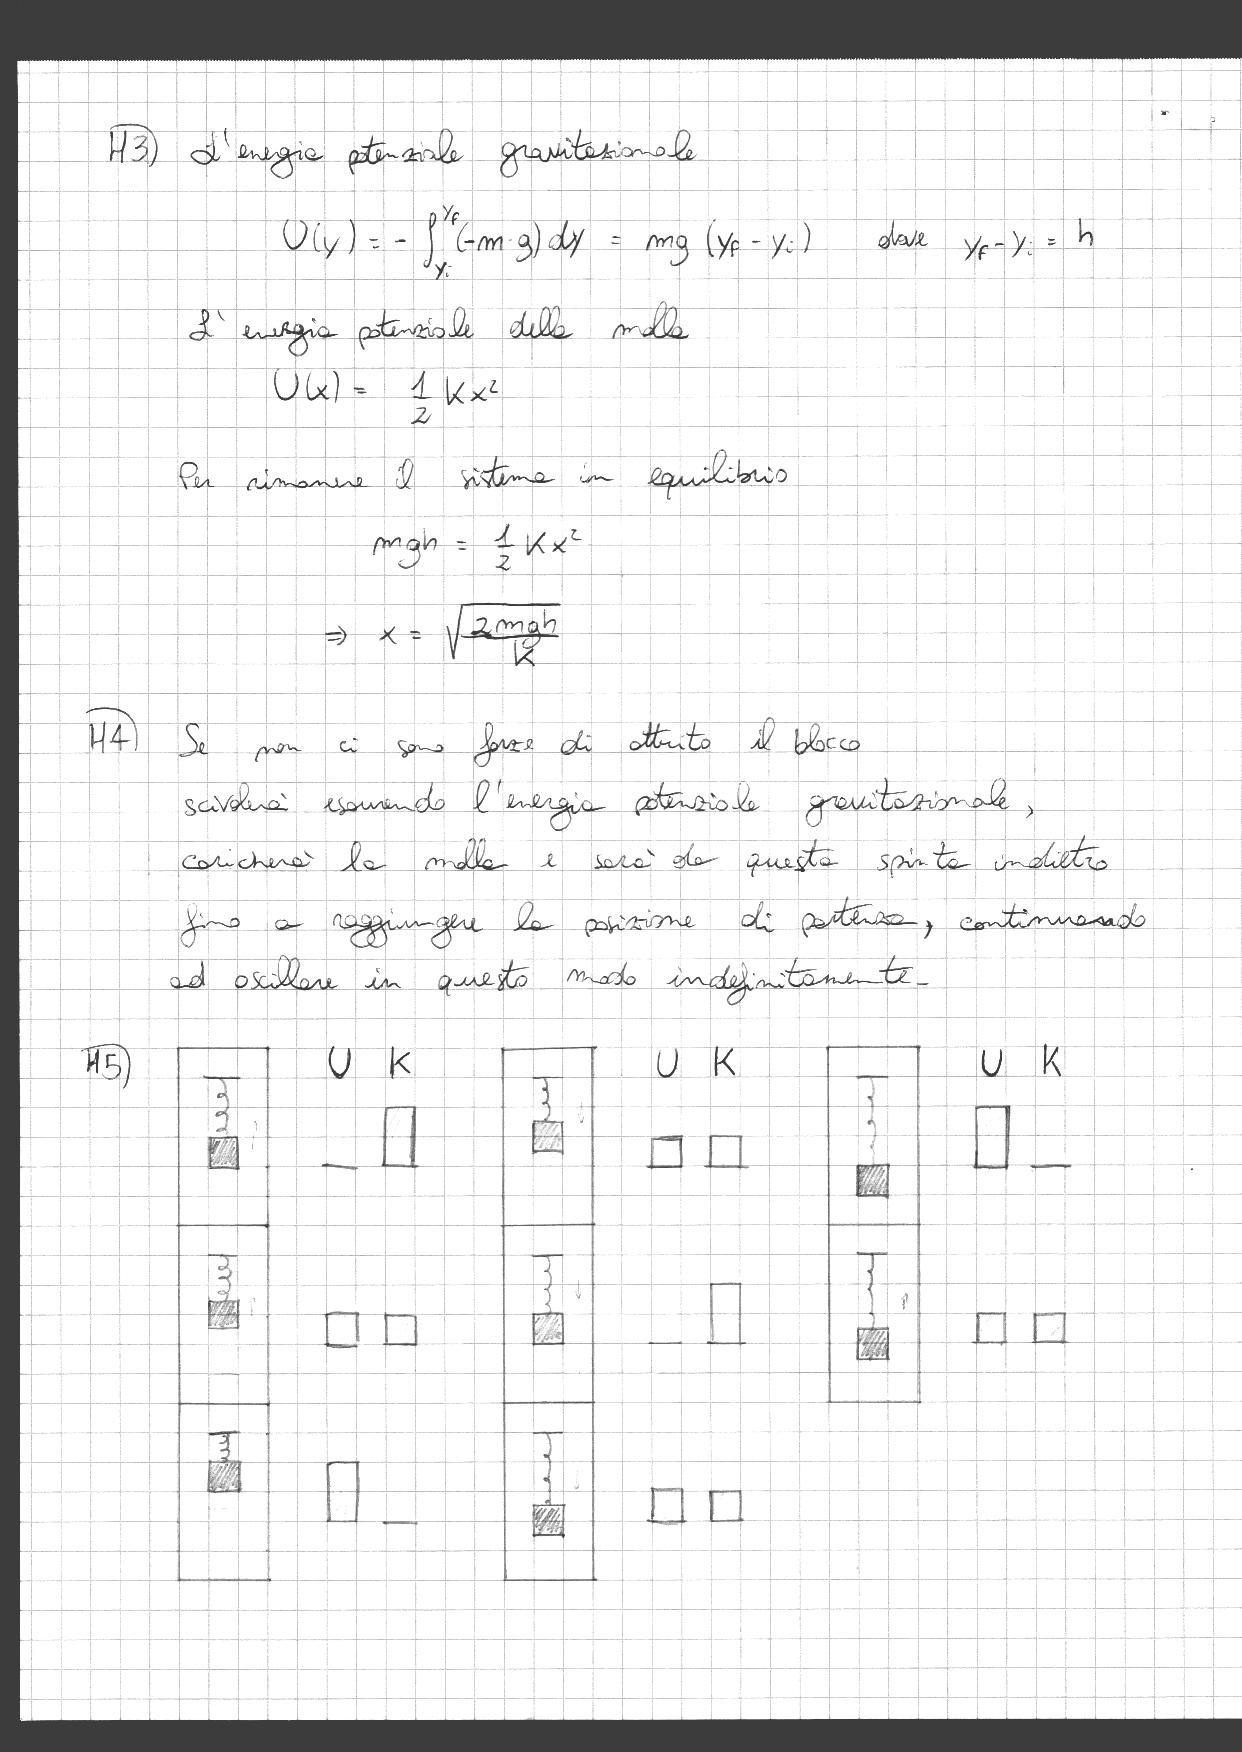 H3) L'energia potenziale gravitazionale
U(y) = - ∫_{yi}^{yf} (-m·g) dy = mg (yf - yi) dove yf - yi = h
L'energia potenziale della molla
U(x) = 1/2 K x²
Per rimanere il sistema in equilibrio
mgh = 1/2 K x²
⇒ x = √(2mgh/K)
H4) Se non ci sono forze di attrito il blocco
scivolerà esaurendo l'energia potenziale gravitazionale,
caricherà la molla e sarà da questa spinta indietro
fino a raggiungere la posizione di partenza, continuando
ad oscillare in questo modo indefinitamente.
H5) U K U K U K